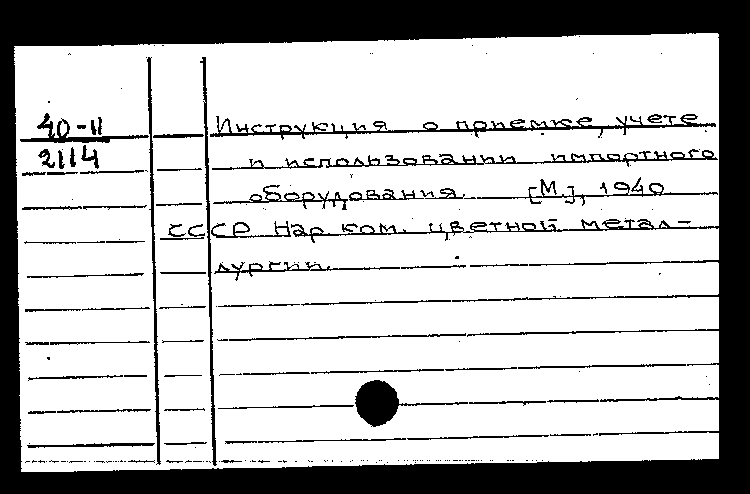 40-11
2114
Инструкция о приемке, учете
и использовании импортного
оборудования. [М.], 1940
СССР Нар. ком. цветной метал-
лургии.